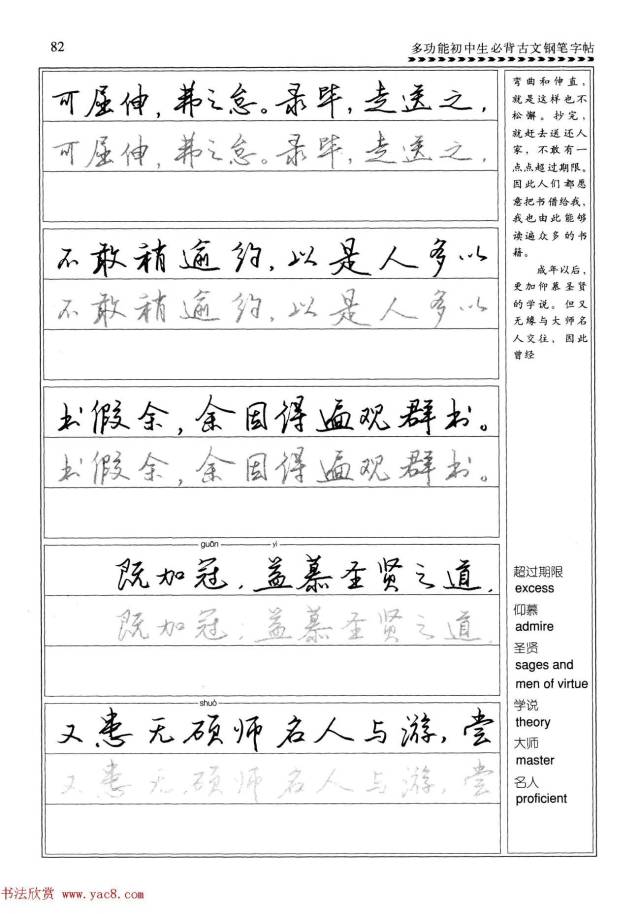 82
多功能初中生必背古文钢笔字帖
可屈伸，弗之怠。录毕，走送之，
可屈伸，弗之怠。录毕，走送之，
不敢稍逾约，以是人多以
不敢稍逾约，以是人多以
书假余，余因得遍观群书。
书假余，余因得遍观群书。
guān yì
既加冠，益慕圣贤之道，
既加冠，益慕圣贤之道，
shuò
又患无硕师名人与游，尝
又患无硕师名人与游，尝
弯曲和伸直，
就是这样也不
松懈。抄完，
就赶去送还人
家，不敢有一
点点超过期限。
因此人们都愿
意把书借给我，
我也由此能够
读遍众多的书
籍。
成年以后，
更加仰慕圣贤
的学说。但又
无缘与大师名
人交往，因此
曾经
超过期限
excess
仰慕
admire
圣贤
sages and
men of virtue
学说
theory
大师
master
名人
proficient
书法欣赏 www.yac8.com